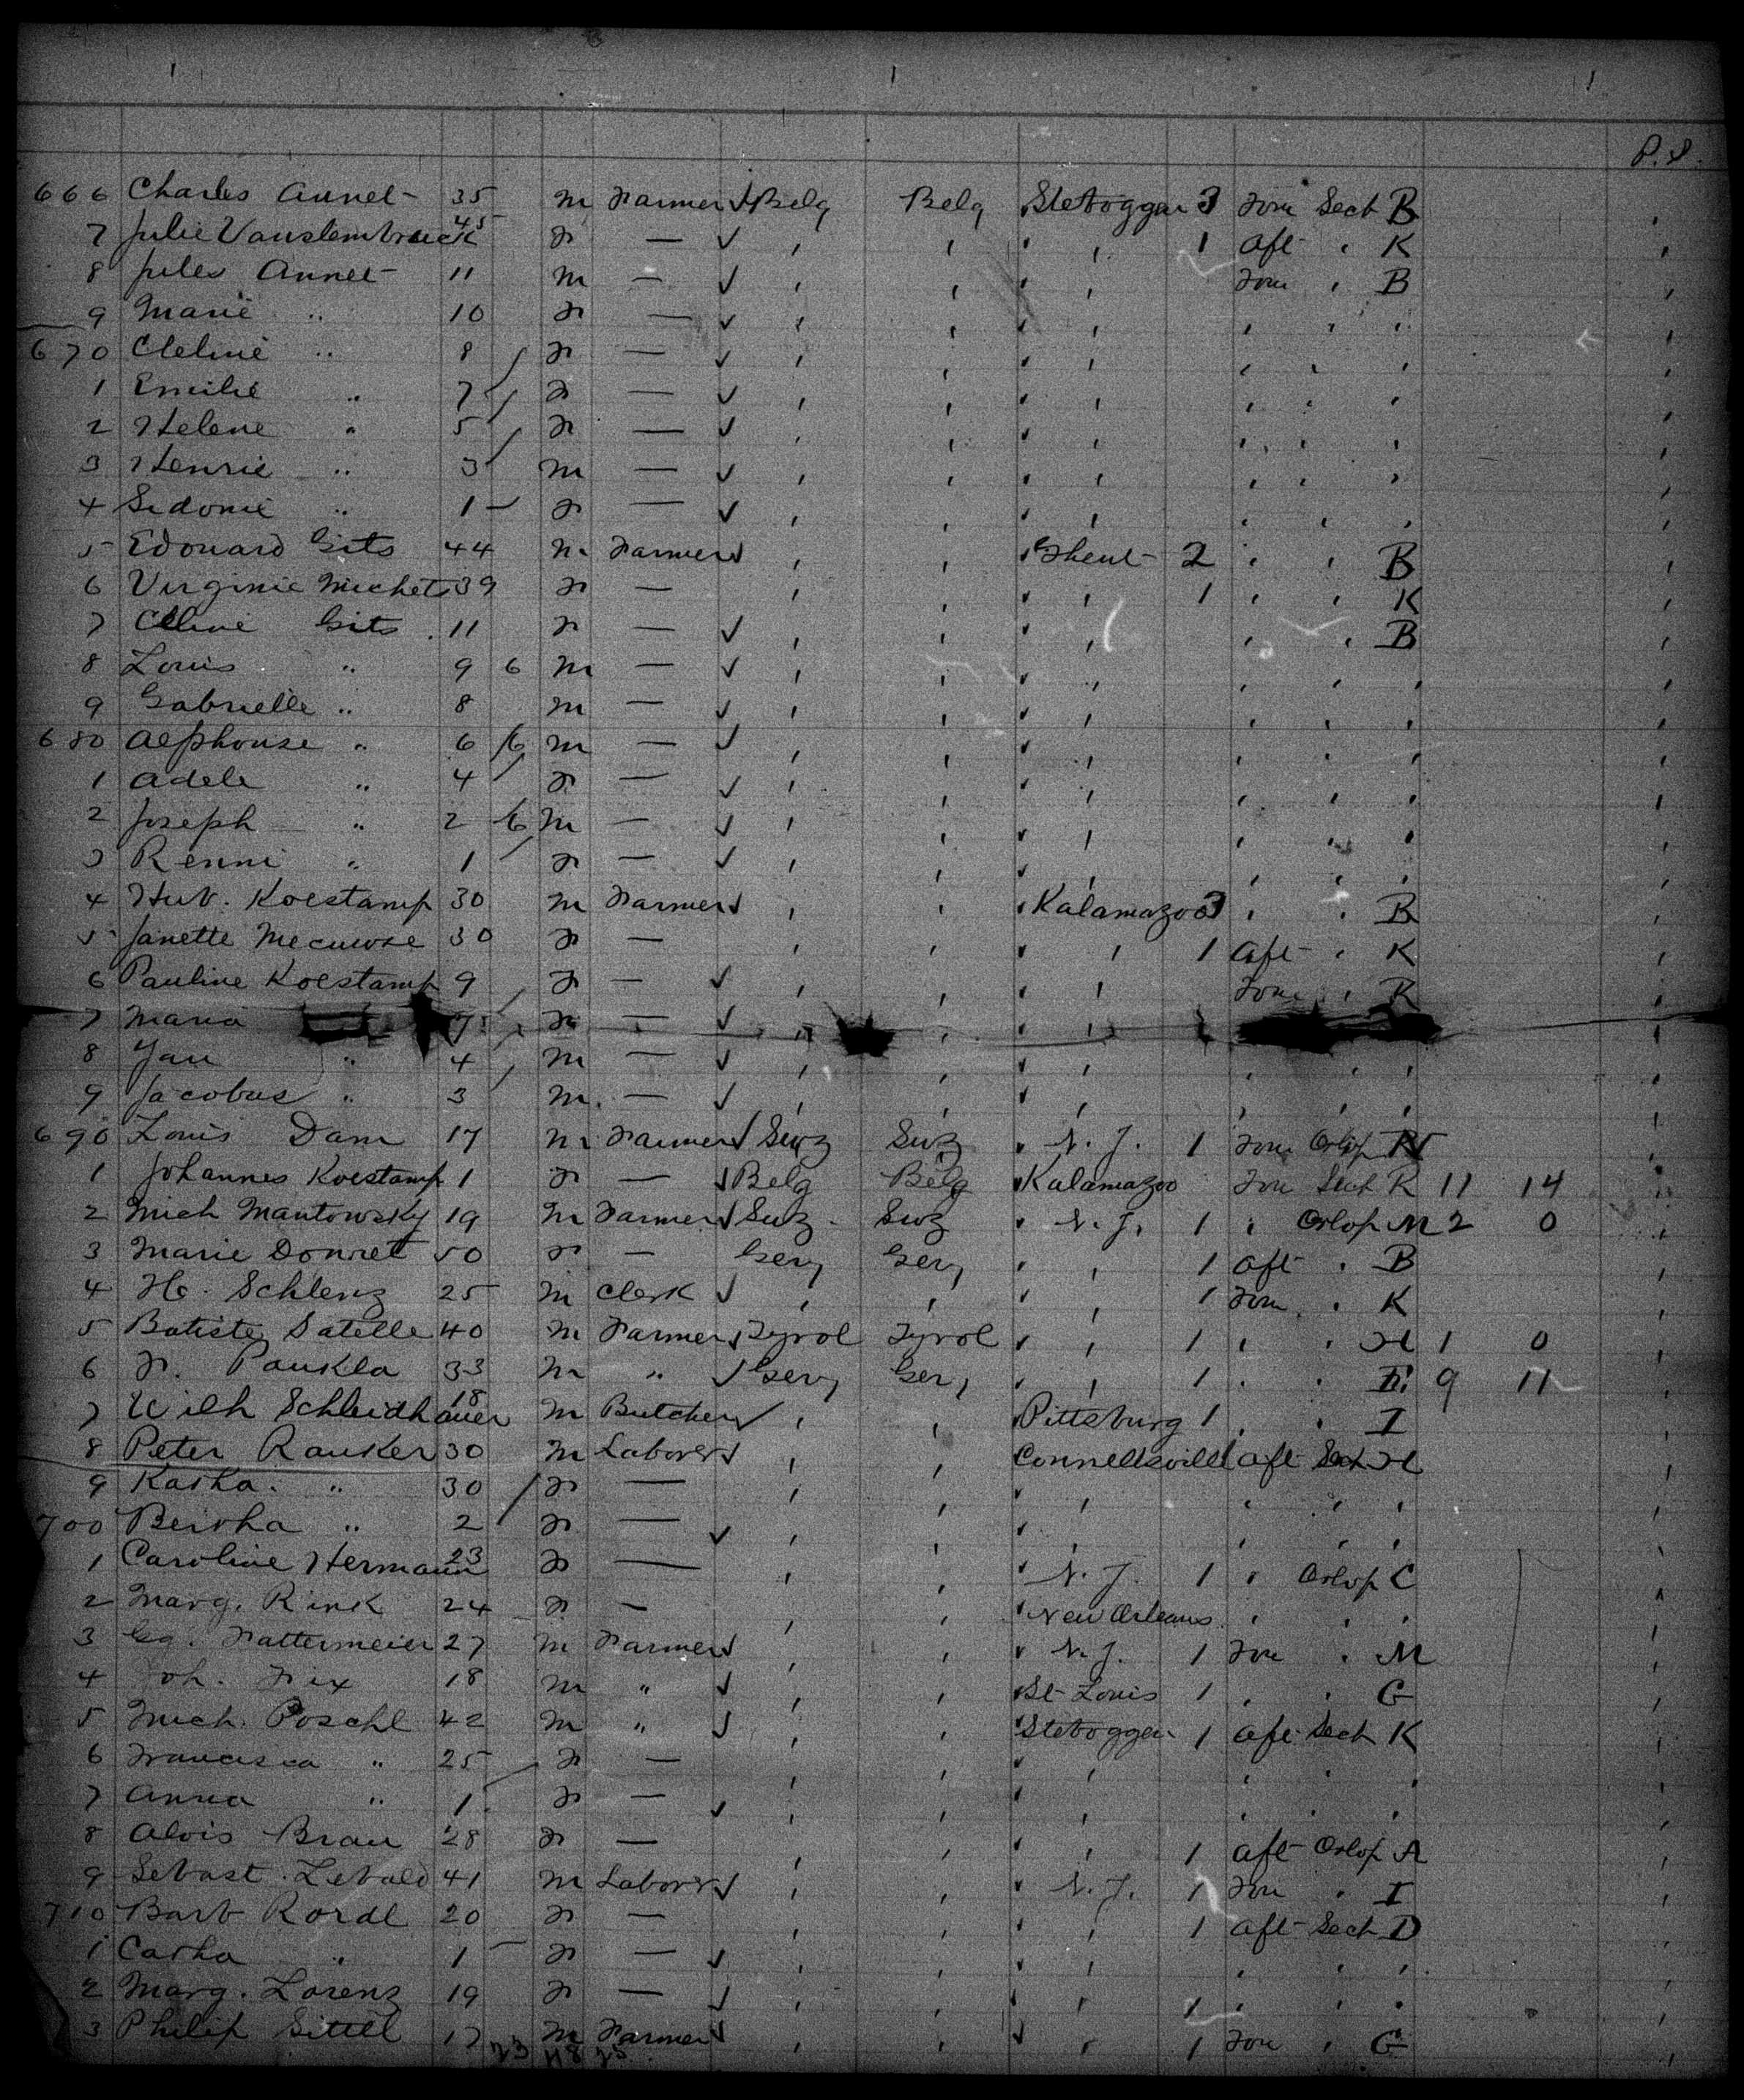 P.S.
666 Charles Annet 35 m Farmer ✓ Belg Belg Steboggan 3 Forw Sect B
7 Julie Vauslembrouck 45 F — ✓ , , , , 1 Aft , K
8 Jules Annet 11 m — ✓ , , , , Forw , B
9 Marie .. 10 F — ✓ , , , , , , ,
670 Cleline .. 8 F — ✓ , , , , , , ,
1 Emilie .. 7 F — ✓ , , , , , , ,
2 Helene .. 5 F — ✓ , , , , , , ,
3 Henrie .. 3 m — ✓ , , , , , , ,
4 Sidonie .. 1 F — ✓ , , , , , , ,
5 Edouard Gits 44 m Farmer ✓ , , Ghent 2 , , B
6 Virginie Michet 39 F — , , , , 1 , , K
7 Cline Gits 11 F — ✓ , , , , , , B
8 Louis .. 9 6 m — ✓ , , , , , , ,
9 Gabrielle .. 8 m — ✓ , , , , , , ,
680 Alphonse .. 6 6 m — ✓ , , , , , , ,
1 Adele .. 4 F — ✓ , , , , , , ,
2 Joseph .. 2 6 m — ✓ , , , , , , ,
3 Renni .. 1 F — ✓ , , , , , , ,
4 Hub. Koestamp 30 m Farmer ✓ , , Kalamazoo 3 , , B
5 Janette 30 F — , , , , 1 Aft , K
6 Pauline Koestamp 9 F — ✓ , , , , Forw , B
7 Maria 7 F — ✓ , , , ,
8 Jan .. 4 m — ✓ , , , , , , ,
9 Jacobus .. 3 m — ✓ , , , , , , ,
690 Louis Dam 17 m Farmer ✓ Swz Swz , N.J. 1 Forw Orlop N
1 Johannes Koestamp 1 F — ✓ Belg Belg Kalamazoo Forw Sect B 11 14
2 Mich Mantowsky 19 m Farmer ✓ Swz Swz , N.J. 1 , Orlop M 2 0
3 Marie Donret 50 F — Gery Gery , , 1 Aft , B
4 H. Schlenz 25 m Clerk ✓ , , , , 1 Forw , K
5 Batiste Satelle 40 m Farmer ✓ Tyrol Tyrol , , 1 , , H 1 0
6 F. Paukla 33 m " ✓ Gery Gery , , 1 , , E 9 11
7 Wilh Schleidhauer 18 m Butcher ✓ , , Pittsburg 1 , , I
8 Peter Rauker 30 m Laborer ✓ , , Connellsville 1 Aft Sect H
9 Katha. .. 30 F — , , , , , , ,
700 Bertha .. 2 F — ✓ , , , , , , ,
1 Caroline Hermann 23 F — , , , N.J. 1 , Orlop C
2 Marg. Rink 24 F — , , New Orleans , , ,
3 Gg. Fattermeier 27 m Farmer ✓ , , , N.J. 1 Forw , M
4 Joh. Fix 18 m " ✓ , , St Louis 1 , , G
5 Mich. Poschl 42 m " ✓ , , Steboggan 1 Aft Sect K
6 Francisca .. 25 F — , , , , , , ,
7 Anna .. 1 F — ✓ , , , , , , ,
8 Alois Brau 28 F — , , , , 1 Aft Orlop A
9 Sebast. Lebald 41 m Laborer ✓ , , , N.J. 1 Forw , I
710 Barb Kordl 20 F — , , , , 1 Aft Sect D
1 Catha .. 1 F — ✓ , , , , , , ,
2 Marg. Lorenz 19 F — ✓ , , , , 1 , , ,
3 Philip Sittel 17 m Farmer ✓ , , , , 1 Forw , G
23 48 25